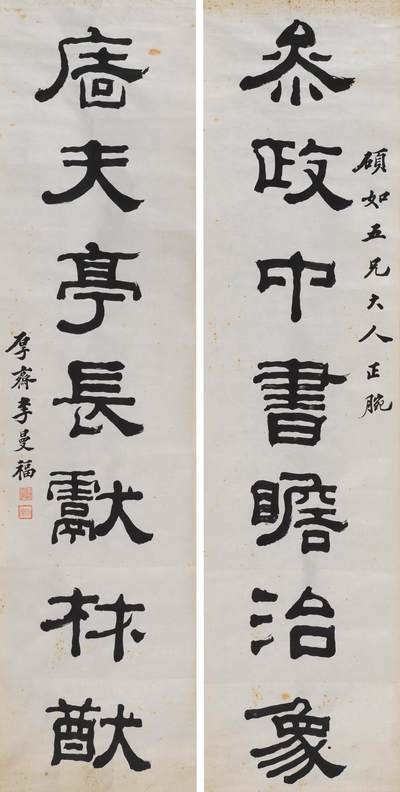 碩如五兄大人正腕
參政中書瞻治象
嗇夫亭長獻猷
厚齊李曼福